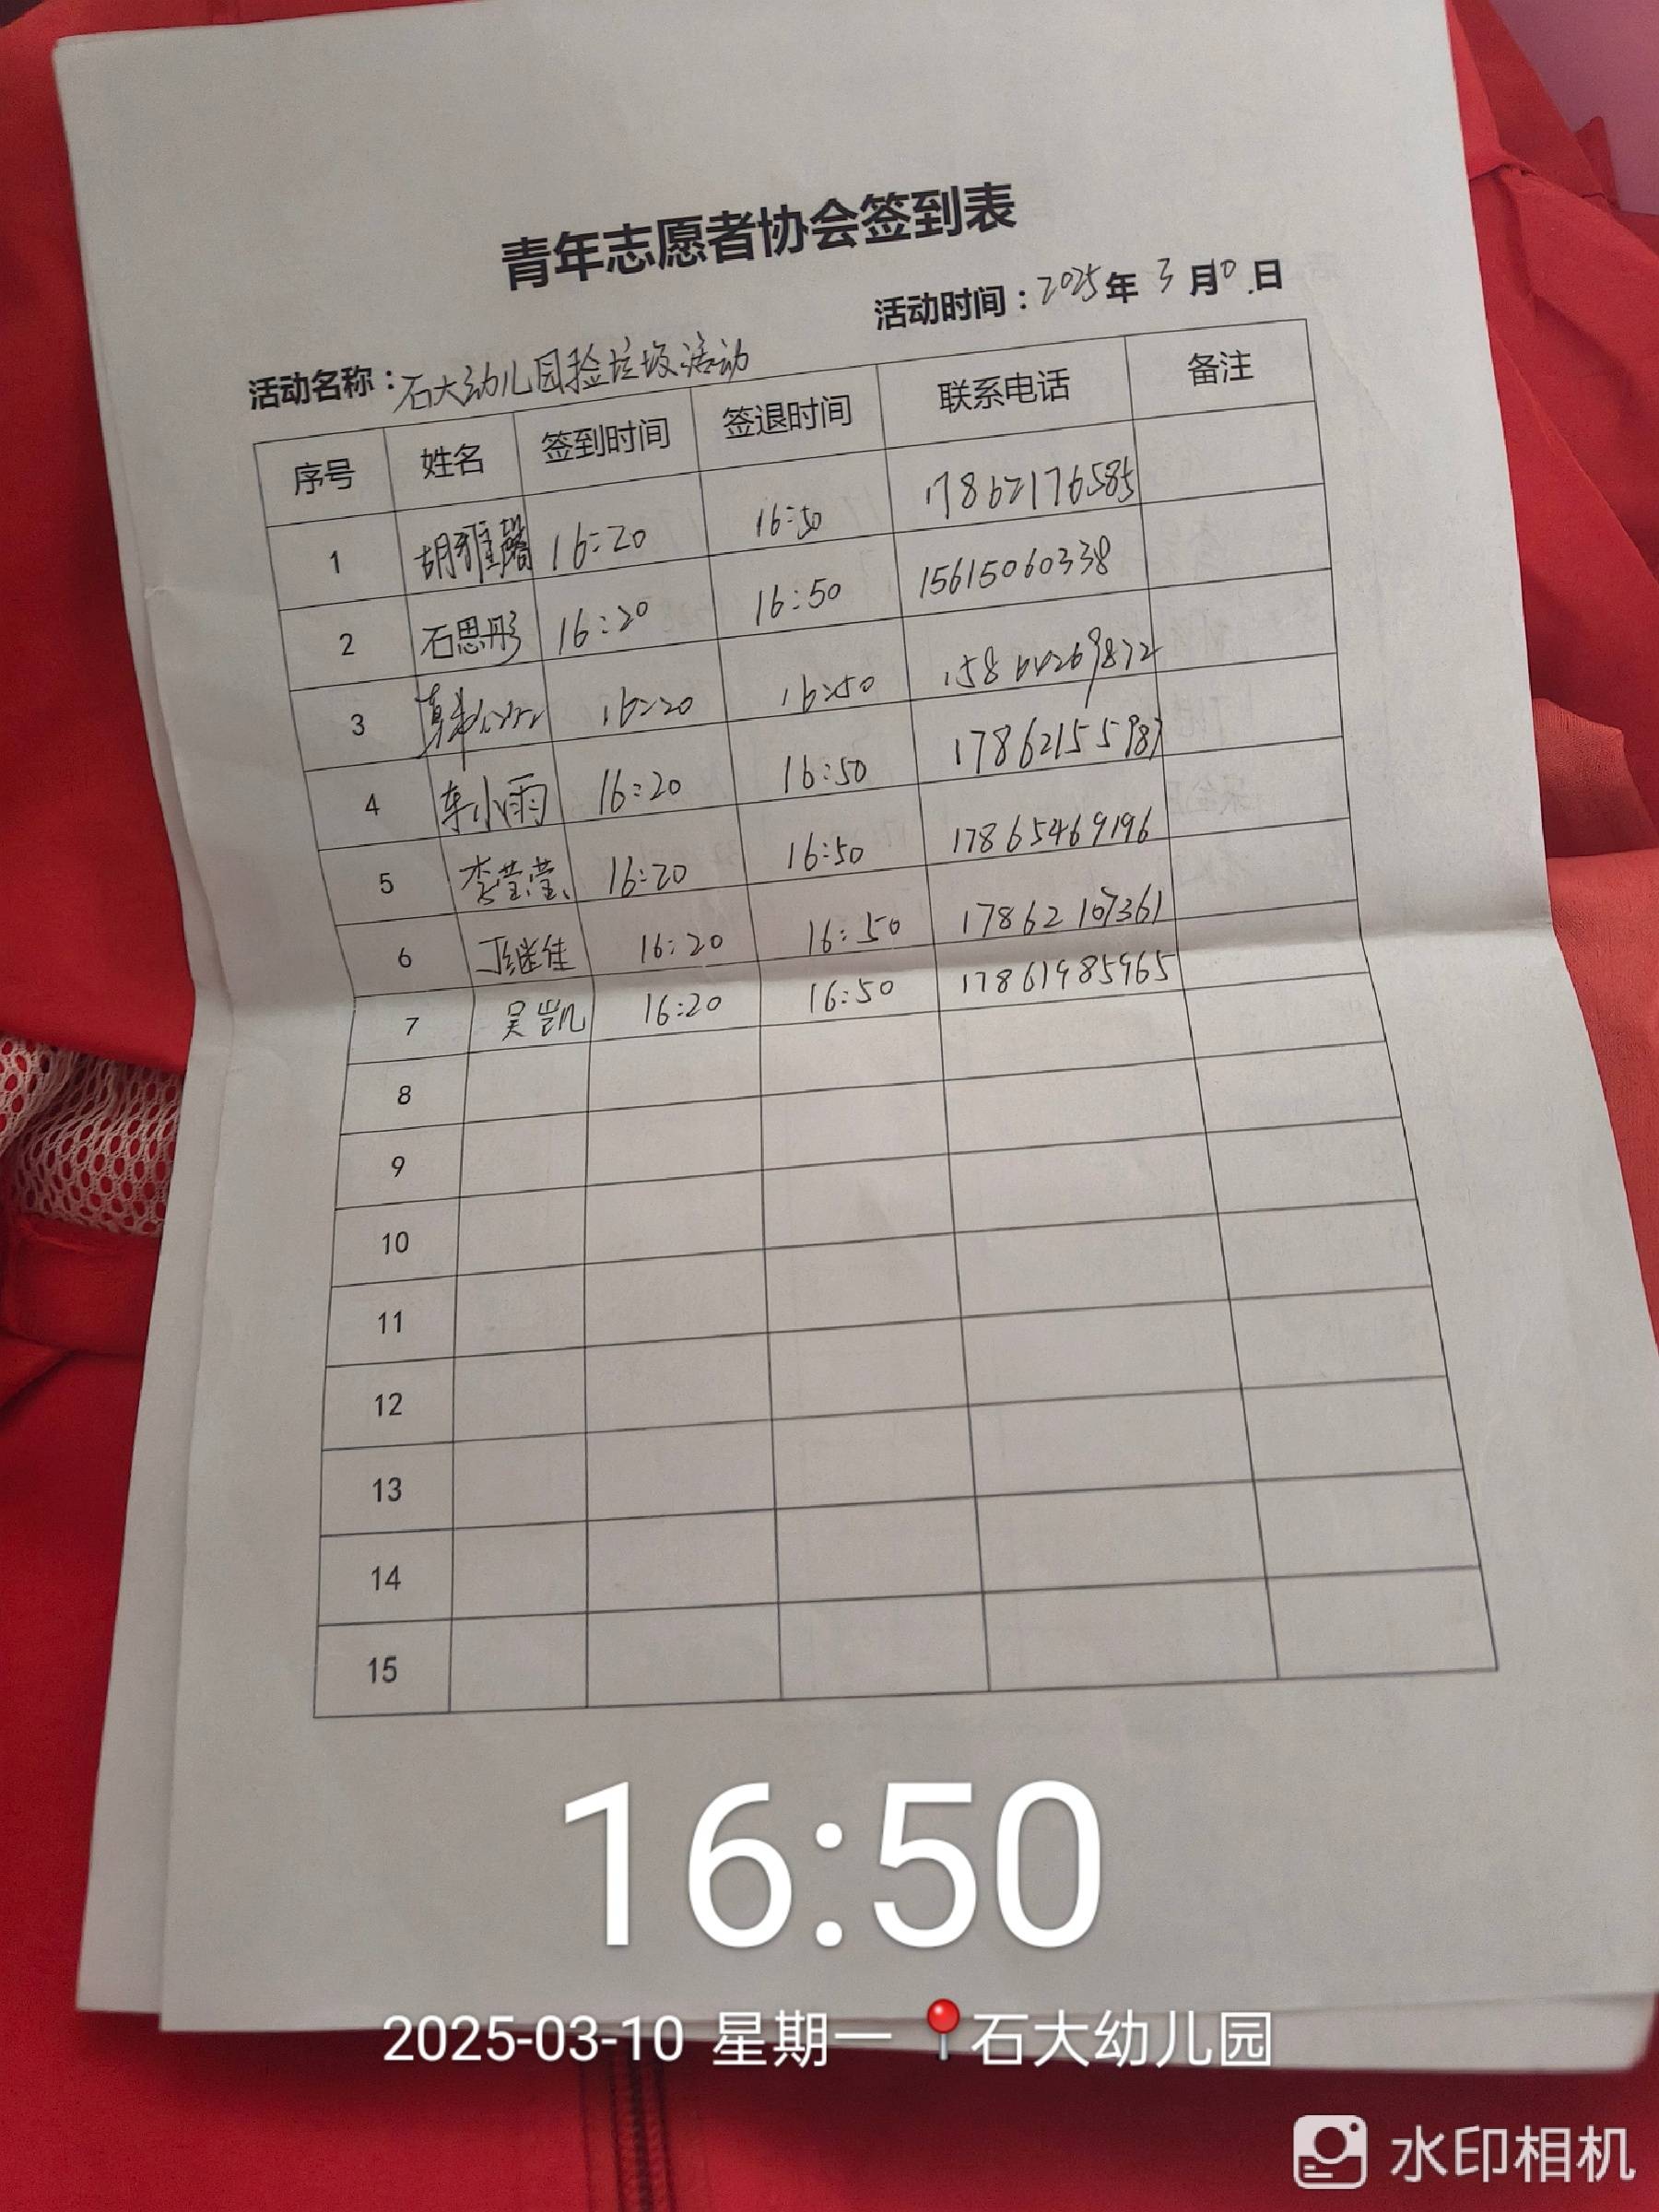 青年志愿者协会签到表
活动时间：2025年 3 月10日
活动名称：石大幼儿园捡垃圾活动
序号 姓名 签到时间 签退时间 联系电话 备注
1 胡雅馨 16:20 16:50 17862176585
2 石思彤 16:20 16:50 15615060338
3 16:20 16:50
4 车小雨 16:20 16:50
5 李莹莹 16:20 16:50 17865469196
6 丁继佳 16:20 16:50 17862107361
7 吴凯 16:20 16:50 17861985965
8
9
10
11
12
13
14
15
16:50
2025-03-10 星期一 石大幼儿园
水印相机